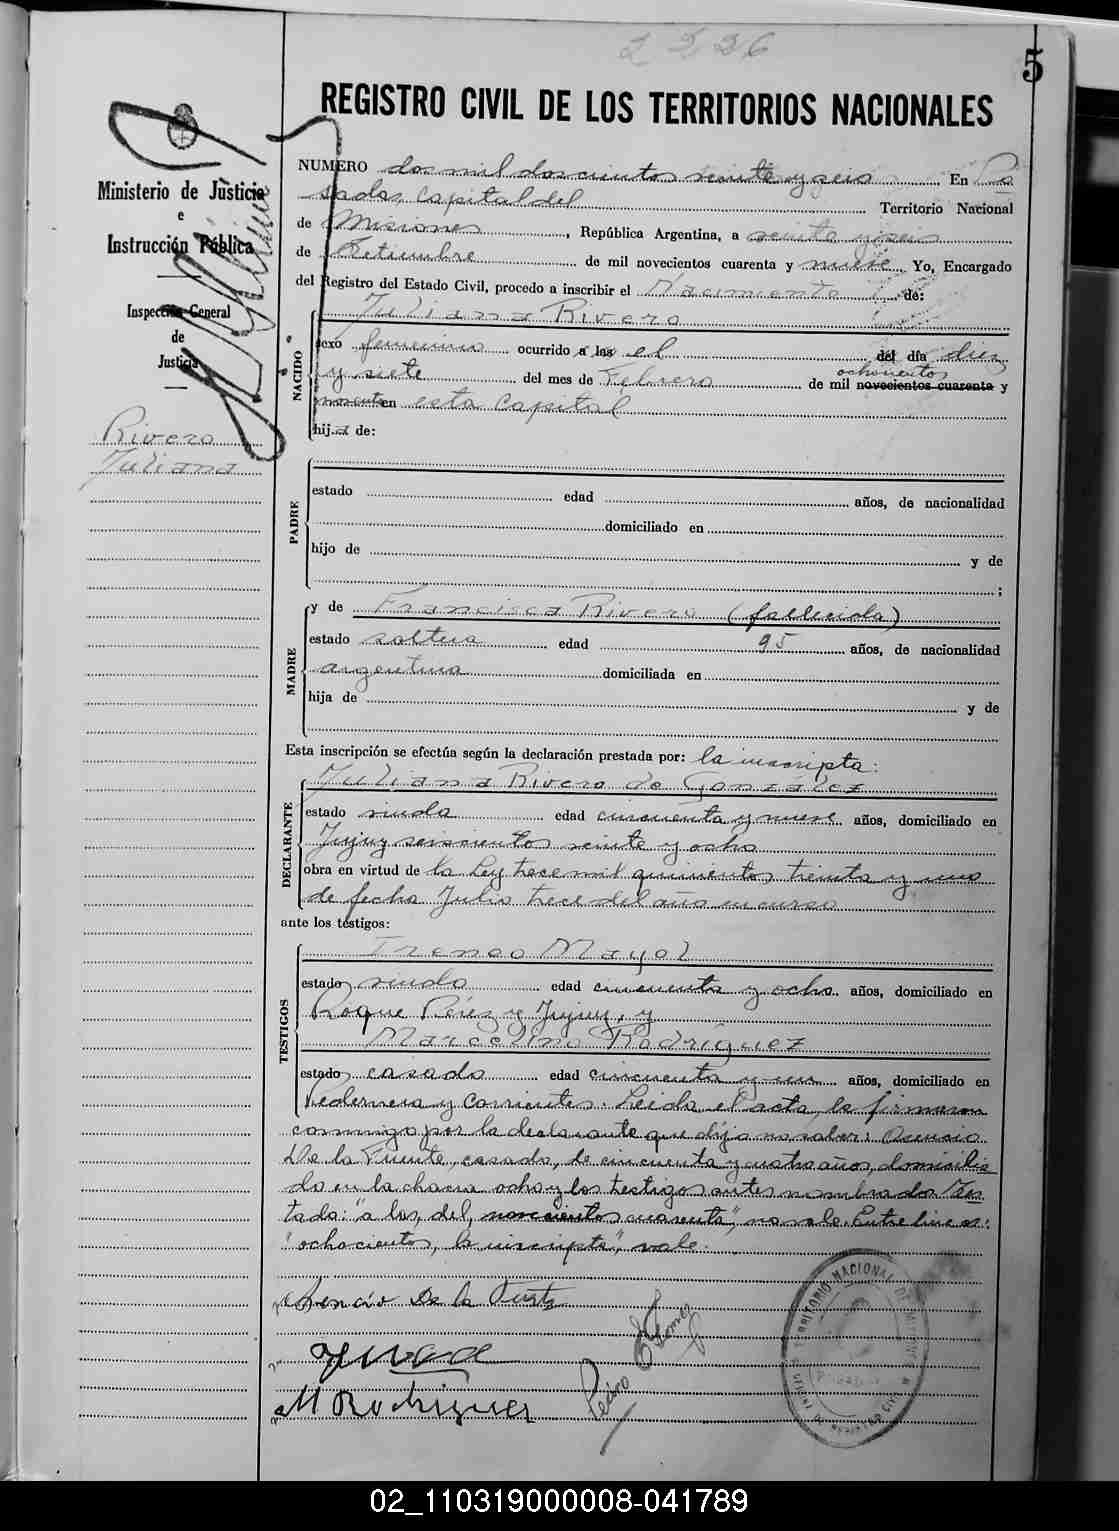 2226
5
REGISTRO CIVIL DE LOS TERRITORIOS NACIONALES
Ministerio de Justicia
e
Instrucción Pública
Inspección General
de
Justicia
Rivero
Juliana
NUMERO dos mil doscientos veinte y seis En Po
sadas, capital del Territorio Nacional
de Misiones, República Argentina, a veinte y seis
de Setiembre de mil novecientos cuarenta y nueve Yo, Encargado
del Registro del Estado Civil, procedo a inscribir el Nacimiento de:
NACIDO
Juliana Rivero
sexo femenino ocurrido a las el del día diez
y siete del mes de Febrero de mil novecientos cuarenta y
ochocientos
noventa en esta capital
hija de:
PADRE
estado edad años, de nacionalidad
domiciliado en
hijo de y de
;
MADRE
y de Francisca Rivero (fallecida)
estado soltera edad 95 años, de nacionalidad
argentina domiciliada en
hija de y de
Esta inscripción se efectúa según la declaración prestada por: la inscripta:
DECLARANTE
Juliana Rivero de González
estado viuda edad cincuenta y nueve años, domiciliado en
Jujuy seiscientos veinte y ocho
obra en virtud de la Ley trece mil quinientos treinta y uno
de fecha Julio trece del año en curso
ante los testigos:
TESTIGOS
Ireneo Mayol
estado viudo edad cincuenta y ocho años, domiciliado en
Roque Pérez y Jujuy, y
Marcelino Rodríguez
estado casado edad cincuenta y un años, domiciliado en
Pedernera y Corrientes. Leida el acta, la firmaron
conmigo por la declarante que dijo no saber: Asencio
De la Fuente, casado, de cincuenta y cuatro años, domicilia
do en la chacra ocho y los testigos antes nombrados. Tes
tado: "a las, del, novecientos cuarenta", no vale. Entre líneas:
"ochocientos, la inscripta", vale.
Asencio De la Fuente
M Rodriguez
Pedro E Gomez
TERRITORIO NACIONAL DE MISIONES
OFICINA DE REGISTRO CIVIL
POSADAS
02_110319000008-041789